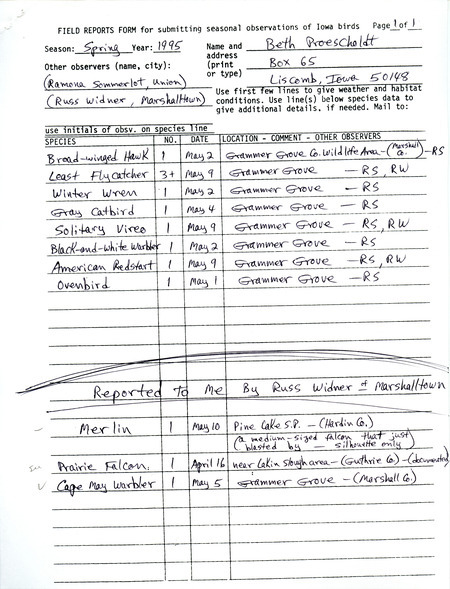 FIELD REPORTS FORM for submitting seasonal observations of Iowa birds Page 1 of 1
Season: Spring Year: 1995 Name and Beth Proescholdt
address
Other observers (name, city): (print Box 65
(Ramona Sommerlot, Union) or type) Liscomb, Iowa 50148
(Russ Widner, Marshalltown) Use first few lines to give weather and habitat
conditions. Use line(s) below species data to
give additional details, if needed. Mail to:
use initials of obsv. on species line
SPECIES NO. DATE LOCATION - COMMENT - OTHER OBSERVERS
Broad-winged Hawk 1 May 2 Grammer Grove Co. Wildlife Area - (Marshall Co.) - RS
Least Flycatcher 3+ May 9 Grammer Grove - RS, RW
Winter Wren 1 May 2 Grammer Grove - RS
Gray Catbird 1 May 4 Grammer Grove - RS
Solitary Vireo 1 May 9 Grammer Grove - RS, RW
Black-and-White Warbler 1 May 2 Grammer Grove - RS
American Redstart 1 May 9 Grammer Grove - RS, RW
Ovenbird 1 May 1 Grammer Grove - RS
Reported To Me By Russ Widner of Marshalltown
Merlin 1 May 10 Pine Lake S.P. - (Hardin Co.)
(a medium-sized falcon that just
blasted by silhouette only)
Prairie Falcon 1 April 16 near Lakin Slough area - (Guthrie Co) - (documented)
Cape May Warbler 1 May 5 Grammer Grove - (Marshall Co.)